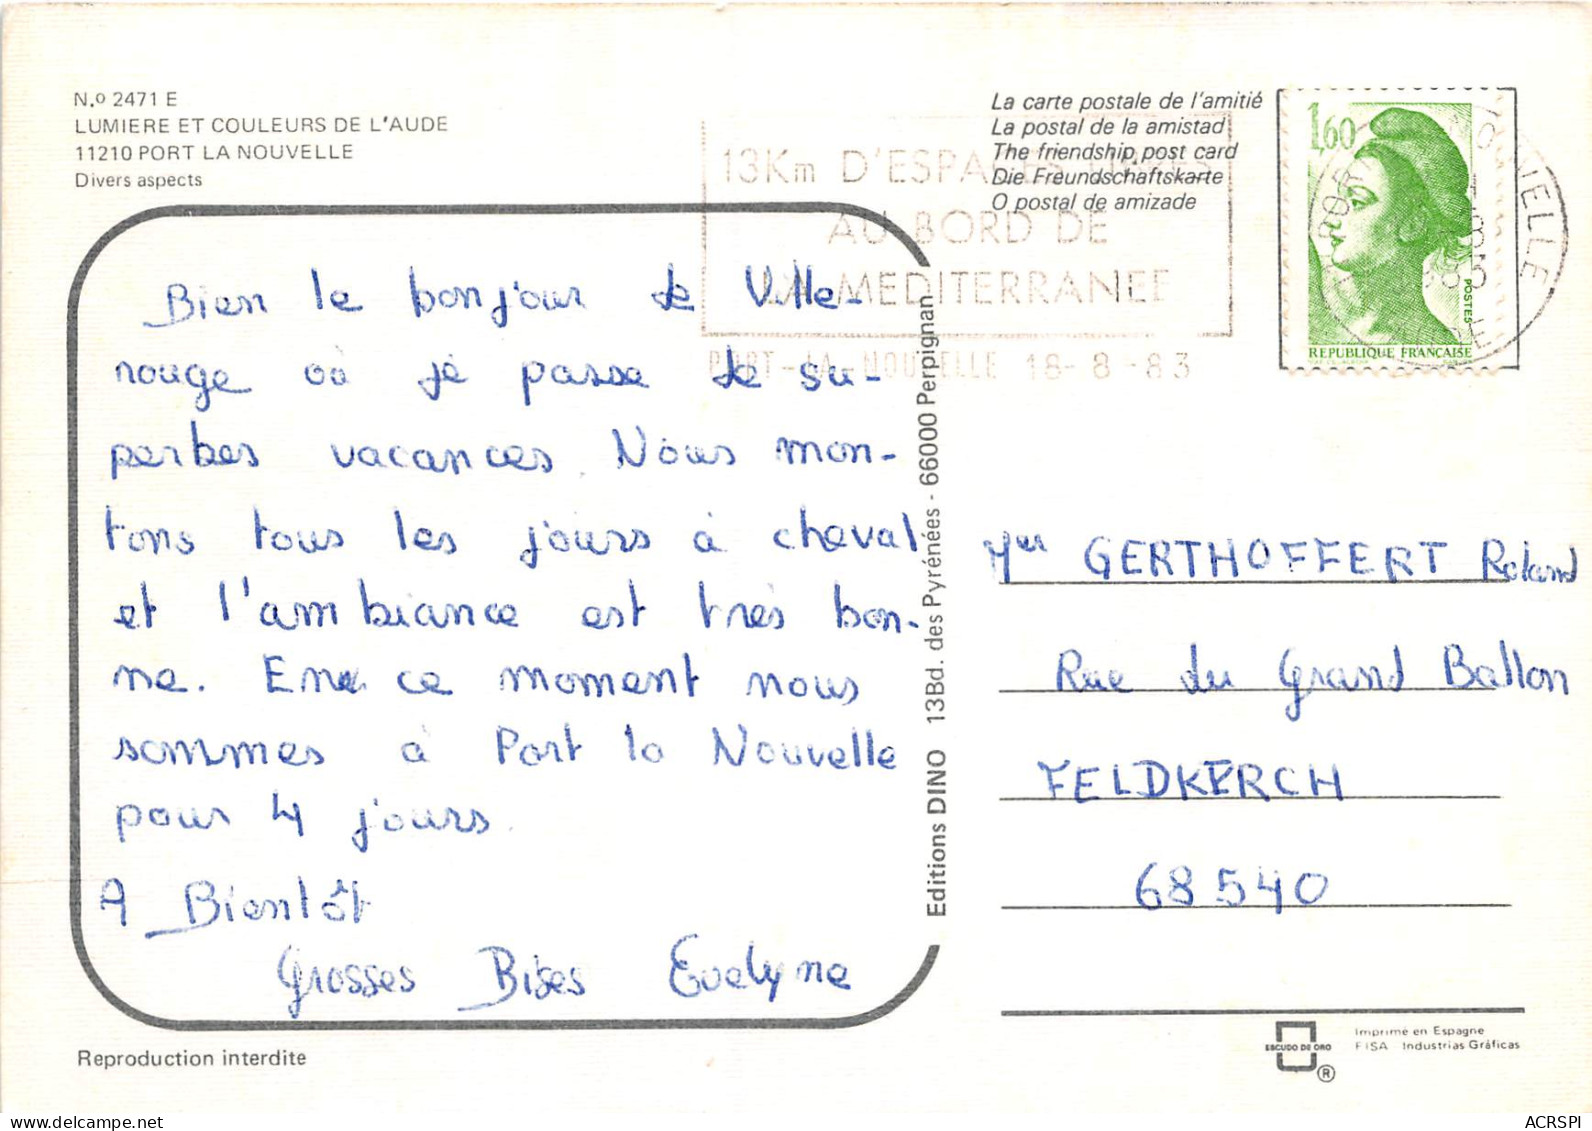 N.º 2471 E
LUMIERE ET COULEURS DE L'AUDE
11210 PORT LA NOUVELLE
Divers aspects
La carte postale de l'amitié
La postal de la amistad
The friendship post card
Die Freundschaftskarte
O postal de amizade
13Km D'ESPACES LIBRES
AU BORD DE
LA MEDITERRANEE
PORT-LA-NOUVELLE 18-8-83
1,60
POSTES
REPUBLIQUE FRANÇAISE
Bien le bonjour de Ville-
rouge où je passe de su-
perbes vacances. Nous mon-
tons tous les jours à cheval
et l'ambiance est très bon-
ne. En ce moment nous
sommes à Port la Nouvelle
pour 4 jours.
A Bientôt
Grosses Bises Evelyne
Editions DINO 13Bd. des Pyrénées - 66000 Perpignan
GERTHOFFERT Roland
Rue du Grand Ballon
FELDKERCH
68540
Reproduction interdite
ESCUDO DE ORO
®
Imprime en Espagne
FISA Industrias Gráficas
delcampe.net
ACRSPI